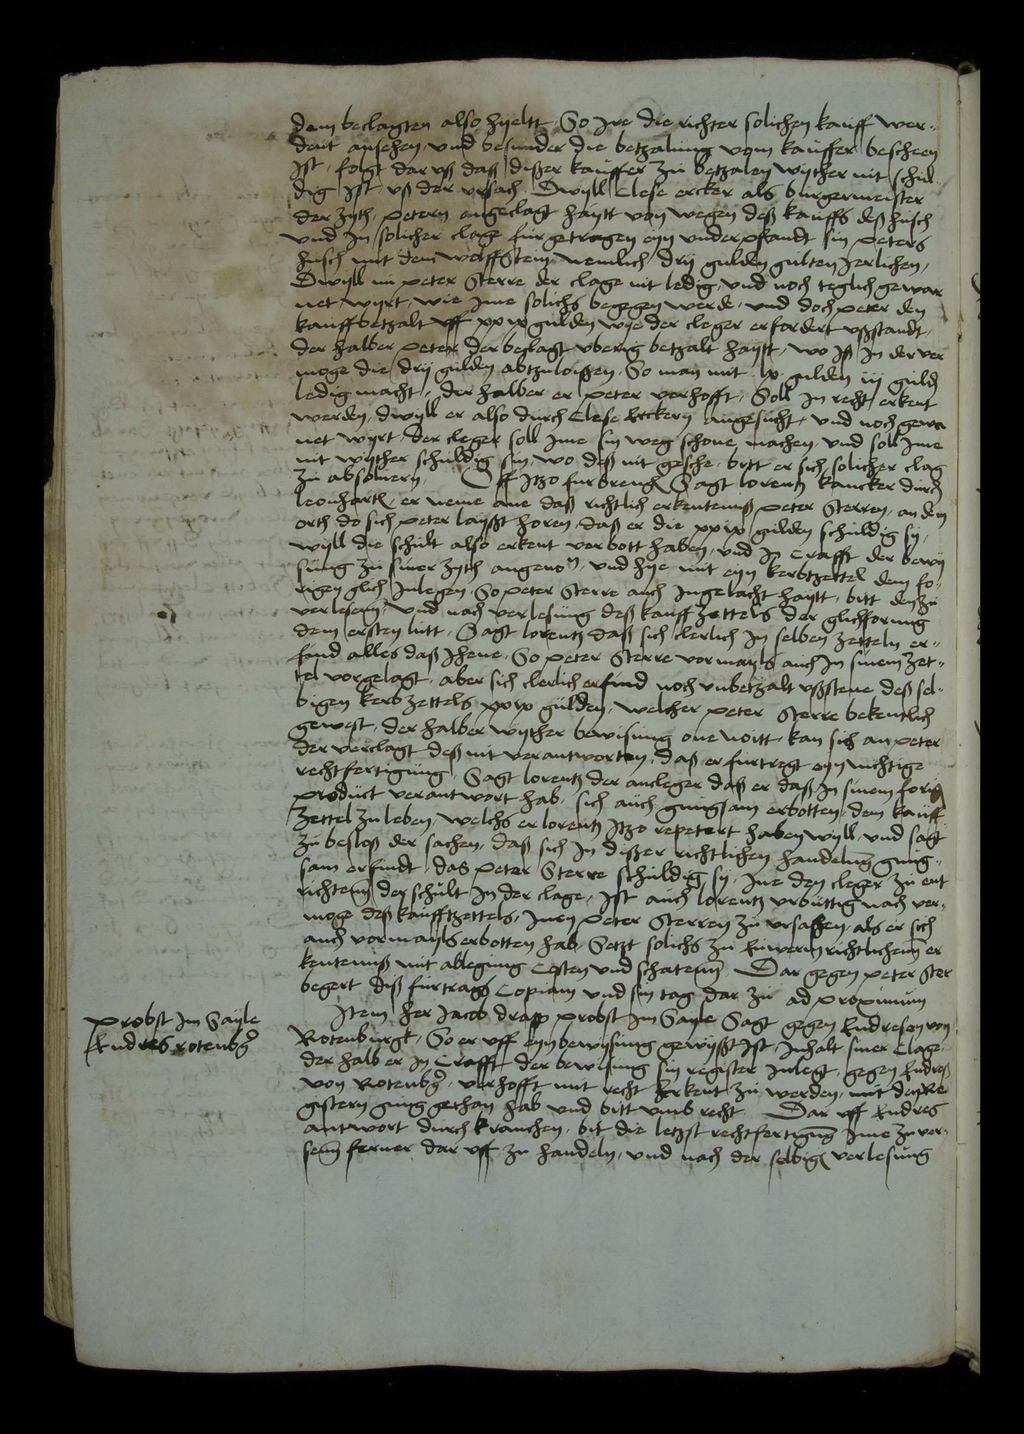 dem beclagten also hyeltt. So Ire die richter solichen kauff wer¬
dent ansehen, und besunder die betzalung vom kauffer bescheen
Ist, folgt dar uß daß dißer kauffer zu betzalen wyther nit schul
dig Ist, uß der ursach. Dwyll Clese ercker als burgermeister
der zyth, Petern angeclagt haytt von wegen deß kauffs deß husch
und In solicher clage furgetragen eyn underpfandt sin Peters
husch mit dem Wolffstein, nemlich drij gulden gulten Jerlichen,
Dwyll nu Peter Sterre der clage nit ledig, und noch teglich gewar
net wyrt, wie Ime solichs begegen werde, und doch Peter den
kauff betzalt uff xxix gulden wye der cleger erfordert ußstandt,
der halber Peter der beclagt uberig betzalt haytt, wo Ist In der ver
moge die drij gulden abtzuloißen, So man mit lx gulden iij guld
ledig macht, der halber er Peter verhofft, Soll In recht erkent
werden, dwyll er also durch Clese Erckern angesucht, und noch gewar
net wyrt, der cleger soll Ime sin weg schone machen, und soll Ime
nit wyther schuldig sin, wo deß nit geschee, bitt er sich solicher clag
zu absolvern, Uff Itzo furbrengen Sagt Lorentz kancker durch
Leonhartt, er neme ane daß richtlich erkentniß Peter Sterren, an dem
orth do sich Peter laysßt horen, daß er die xxix gulden schuldig sy,
wyll die schult also erkent verbott haben, und In Crafft der bewy
sung zu siner zyth angenom, und hye mit eyn kerbtzettel dem fo¬
rigen glich Inlegen, So Peter Sterre auch Ingelacht haytt, bitt den zu
verlesenn, und nach verlesung deß kauff zettels der glichformig
dem ersten lutt, Sagt Lorentz daß sich clerlich In selben zetteln er¬
find alles daß Ihene, So Peter Sterre vormayls auch In sinem zet¬
tel vorgelagt, aber sich clerlich erfind noch unbetzalt ußstene deß sel¬
bigen kerbzettels xxix gulden, welcher Peter Sterre bekentlich
gewest, der halber wyther bewisung one noitt, kan sich an Peter
der verclagt deß nit verantworten, daß er furtregt eyn nichtige
rechtfertigung, Sagt Lorentz der ancleger daß er daß In sinem forig
product verantwort hab, sich auch gnugsam erbotten, dem kauff
zettel zu leben welchs er Lorentz Itzo repetert haben wyll, und sagt
zu besloß der sachen, daß sich In dißer richtlichen handelung gnug¬
sam erfindt, das Peter Sterre schuldig sy, Ime dem cleger zu ent
richtenn den schult In der clage, Ist auch Lorentz urbuttig nach ver¬
moge deß kaufftzettels, Inen Peter Sterren zu ursaßen, als er sich
auch vormayls erbotten hab, Setzt solichs zu Euwern richtlichenn er
kentenniß mit ablegung Costen und schatenn. Dar gegen Peter Ster
begert diß furtrags Copiam und sin tag dar zu ad proximum
Probst Im Sayle
Endres Rotenbg
Item Her Jacob drapp probst Im Sayle Sagt gegen Endresen von
Rotenburgk, So er uff eyn bewysung gewyßt Ist, Inhalt siner Clage,
der halb er In Crafft der bewisung sin register Inlegt, gegen Endreß
von Rotenbg, verhofft mit recht Erkent zu werden, mit den Re
gistern gnug gethan hab und bitt umb recht. Dar uff Endres
antwort durch kranchen, bit die letzst rechtfertigung Ime zu ver¬
senn ferner dar uff zu handeln, und nach der selbig verlesung